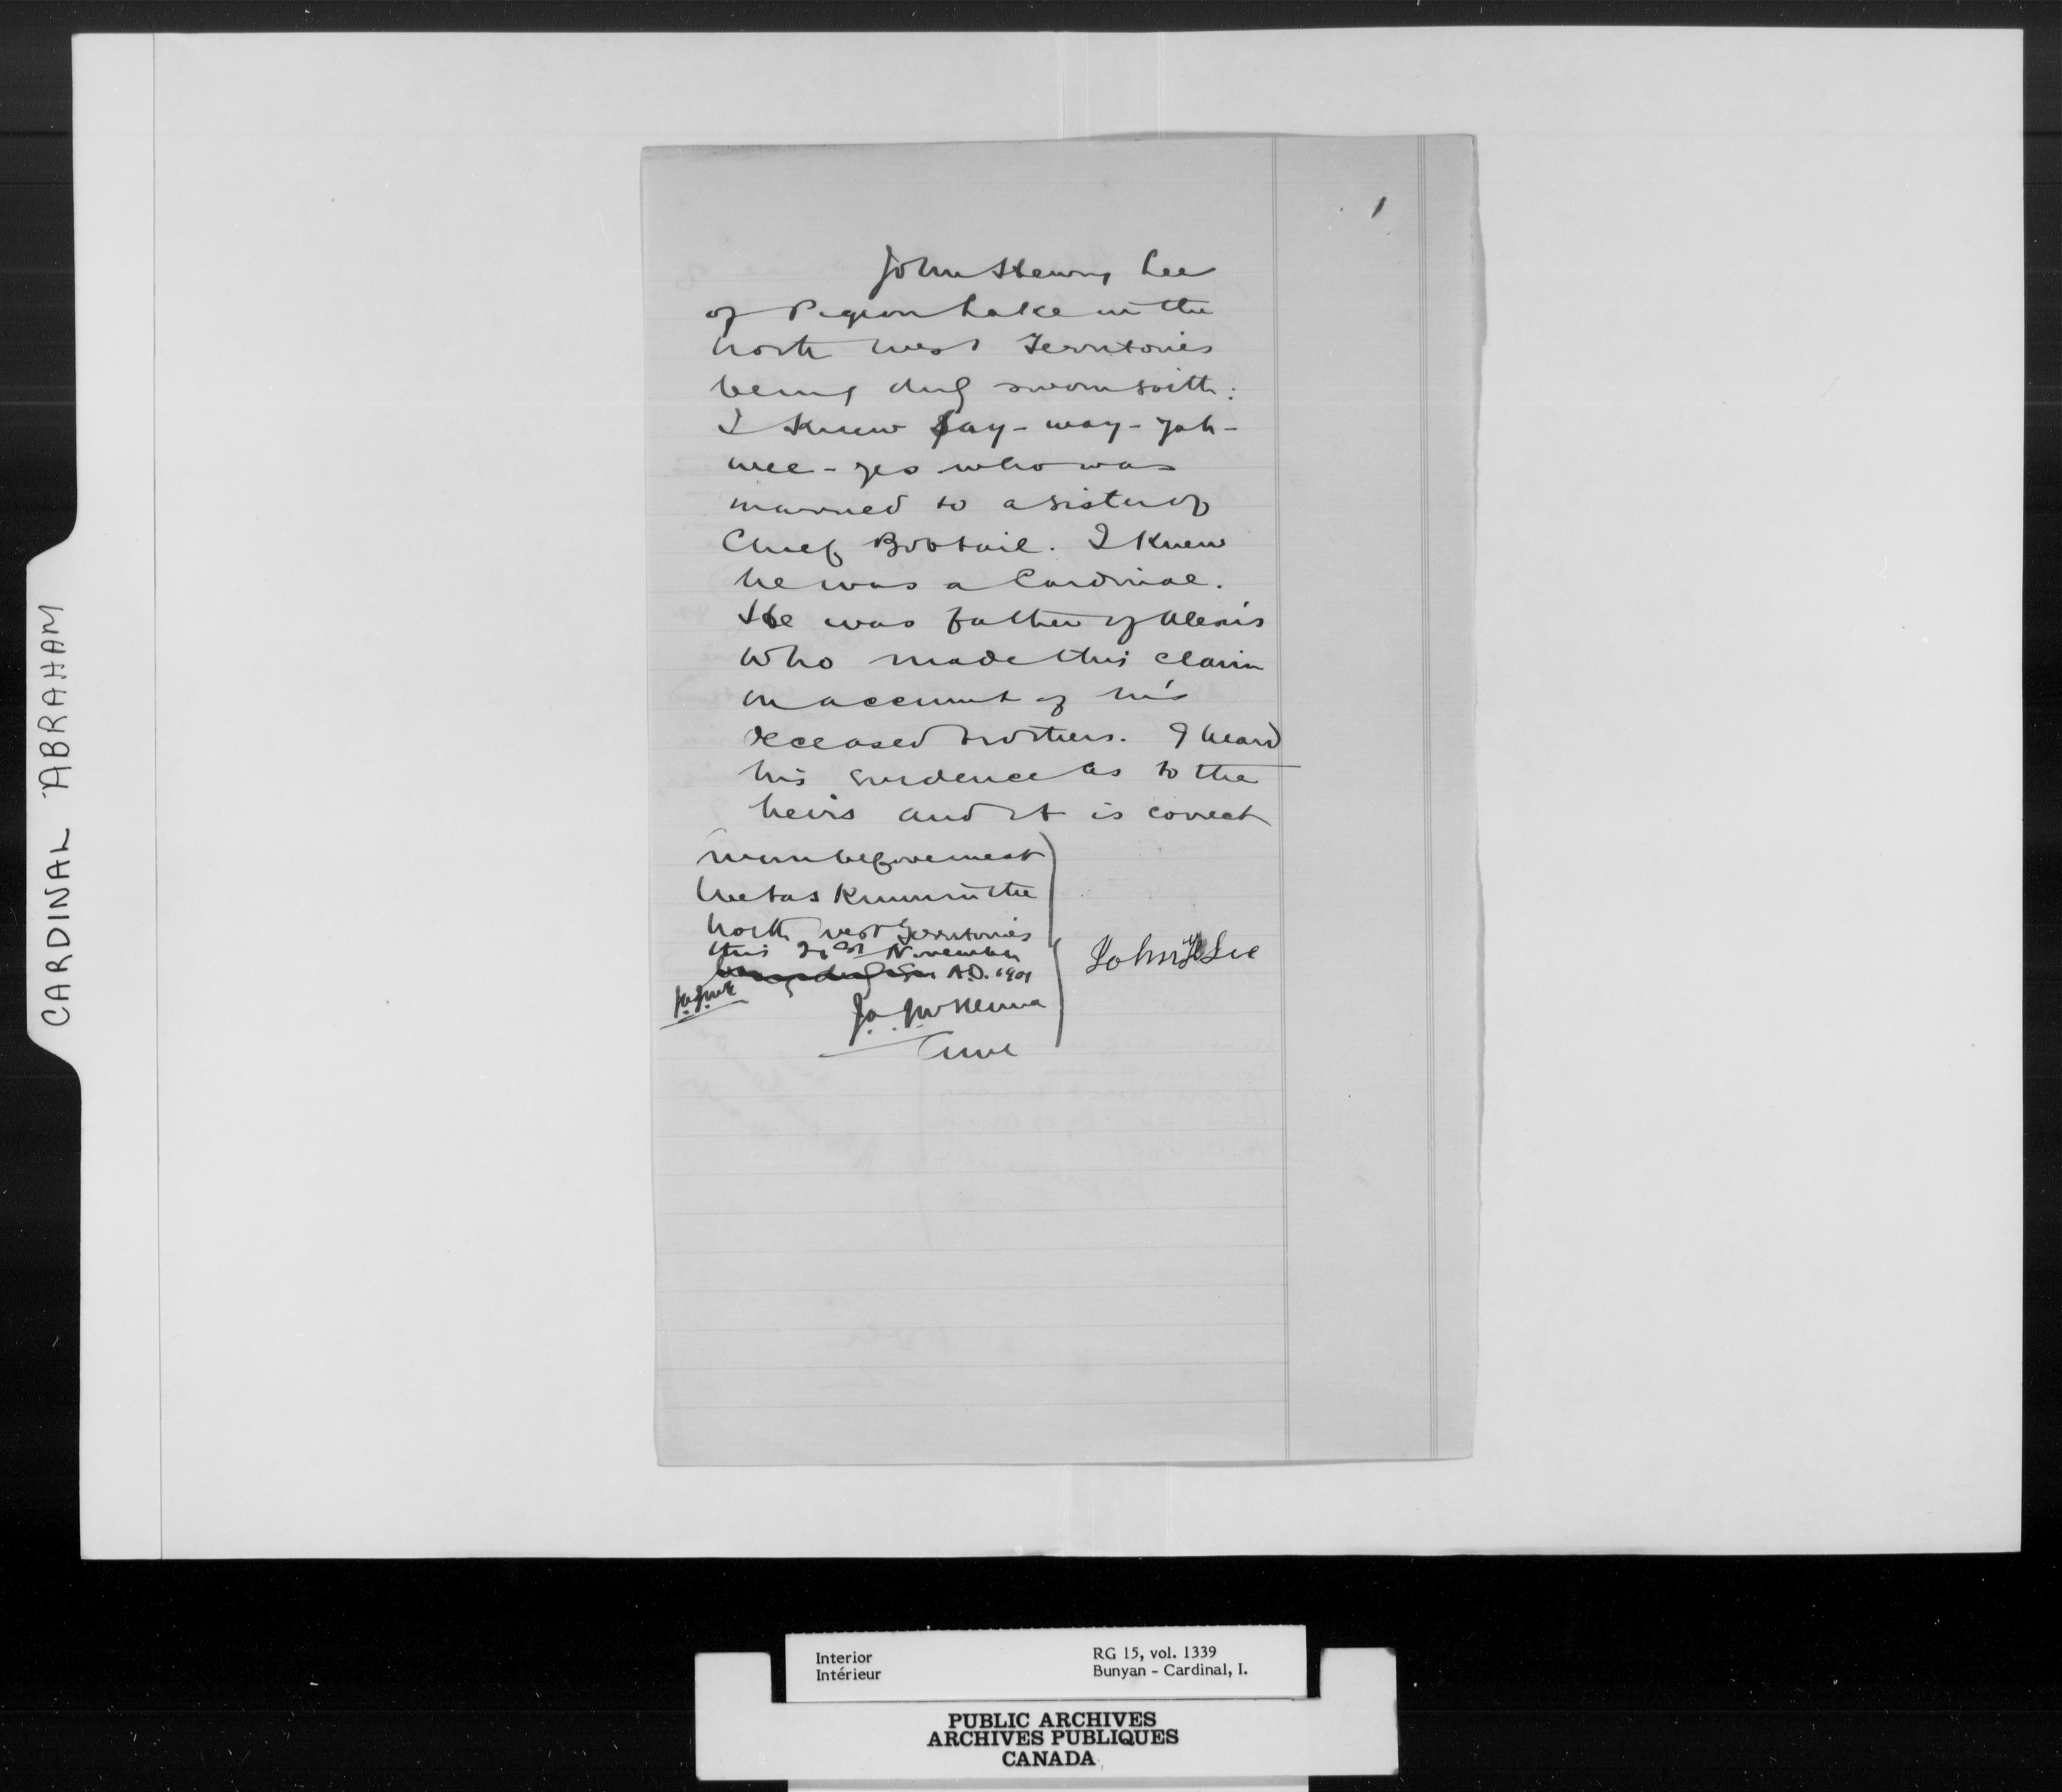 CARDINAL ABRAHAM
1
John Henry Lee
of Pigeon Lake in the
North West Territories
being duly sworn saith:
I knew Say-way-yah-
wee-ges who was
married to a sister of
Chief Bobtail. I knew
he was a Cardinal.
He was father of Alexis
who made this claim
on account of his
deceased brothers. I heard
his evidence as to the
heirs and it is correct
sworn before me at
Wetaskiwin in the
North West Territories
this 21st November
A.D. 1901
J.A.J.McK
J.A.J. McKenna
John H Lee
Interior
Intérieur
RG 15, vol. 1339
Bunyan - Cardinal, I.
PUBLIC ARCHIVES
ARCHIVES PUBLIQUES
CANADA